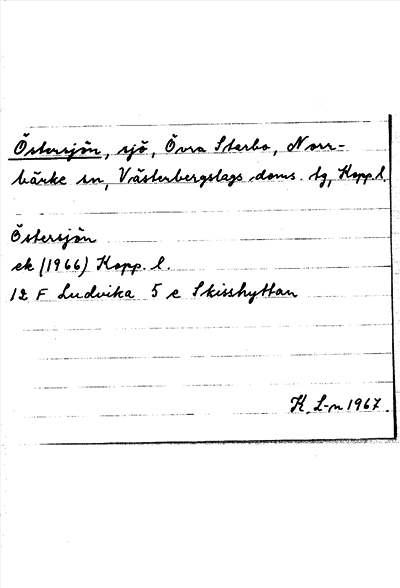 Östersjön, sjö, Övra Starbo, Norr-
bärke sn, Västerbergslags doms. tg, Kopp.l.
Östersjön
ek (1966) Kopp. l.
12 F Ludvika 5 e Skisshyttan
K. L-n 1967.